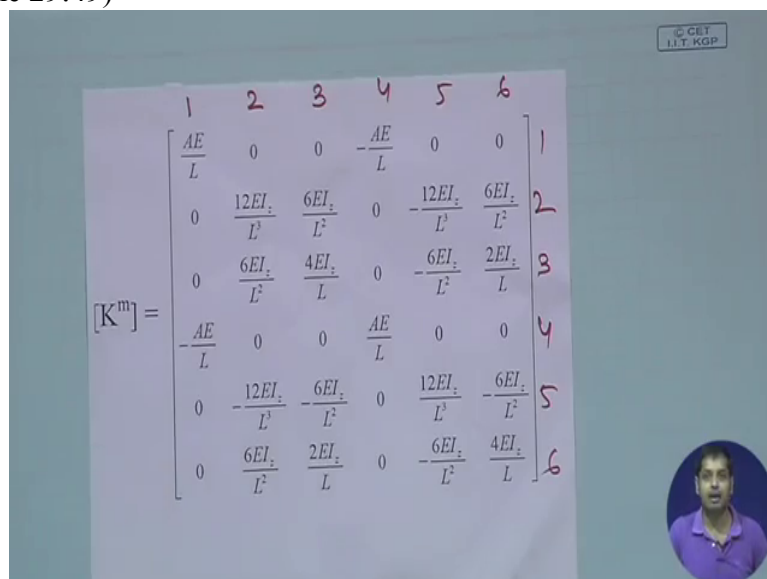 © CET
I.I.T. KGP
1 2 3 4 5 6
AE/L 0 0 -AE/L 0 0 1
0 12EI_z/L³ 6EI_z/L² 0 -12EI_z/L³ 6EI_z/L² 2
0 6EI_z/L² 4EI_z/L 0 -6EI_z/L² 2EI_z/L 3
[Kᵐ] =
-AE/L 0 0 AE/L 0 0 4
0 -12EI_z/L³ -6EI_z/L² 0 12EI_z/L³ -6EI_z/L² 5
0 6EI_z/L² 2EI_z/L 0 -6EI_z/L² 4EI_z/L 6